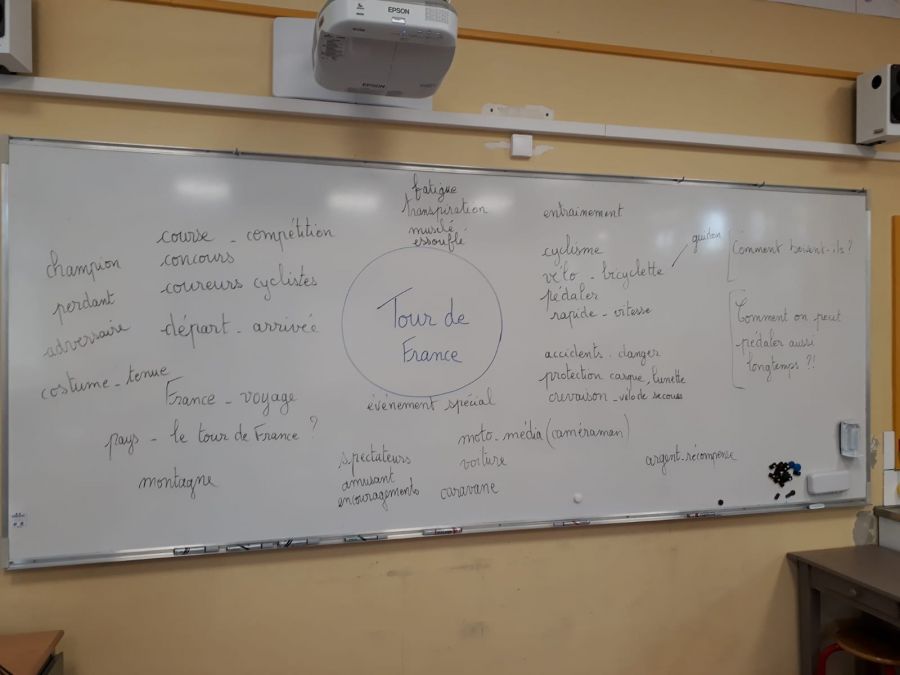 EPSON
EPSON
fatigue
transpiration
musclé
essouflé
entrainement
course - compétition
concours
coureurs cyclistes
départ - arrivée
champion
perdant
adversaire
costume - tenue
France - voyage
pays - le tour de France ?
montagne
Tour de
France
événement spécial
moto - média (caméraman)
spectateurs
voiture
amusant
encouragements
caravane
cyclisme
vélo - bicyclette
guidon
pédaler
rapide - vitesse
accidents - danger
protection casque, lunette
crevaison - vélo de secours
argent - récompense
Comment boivent-ils ?
Comment on peut
pédaler aussi
longtemps ?!